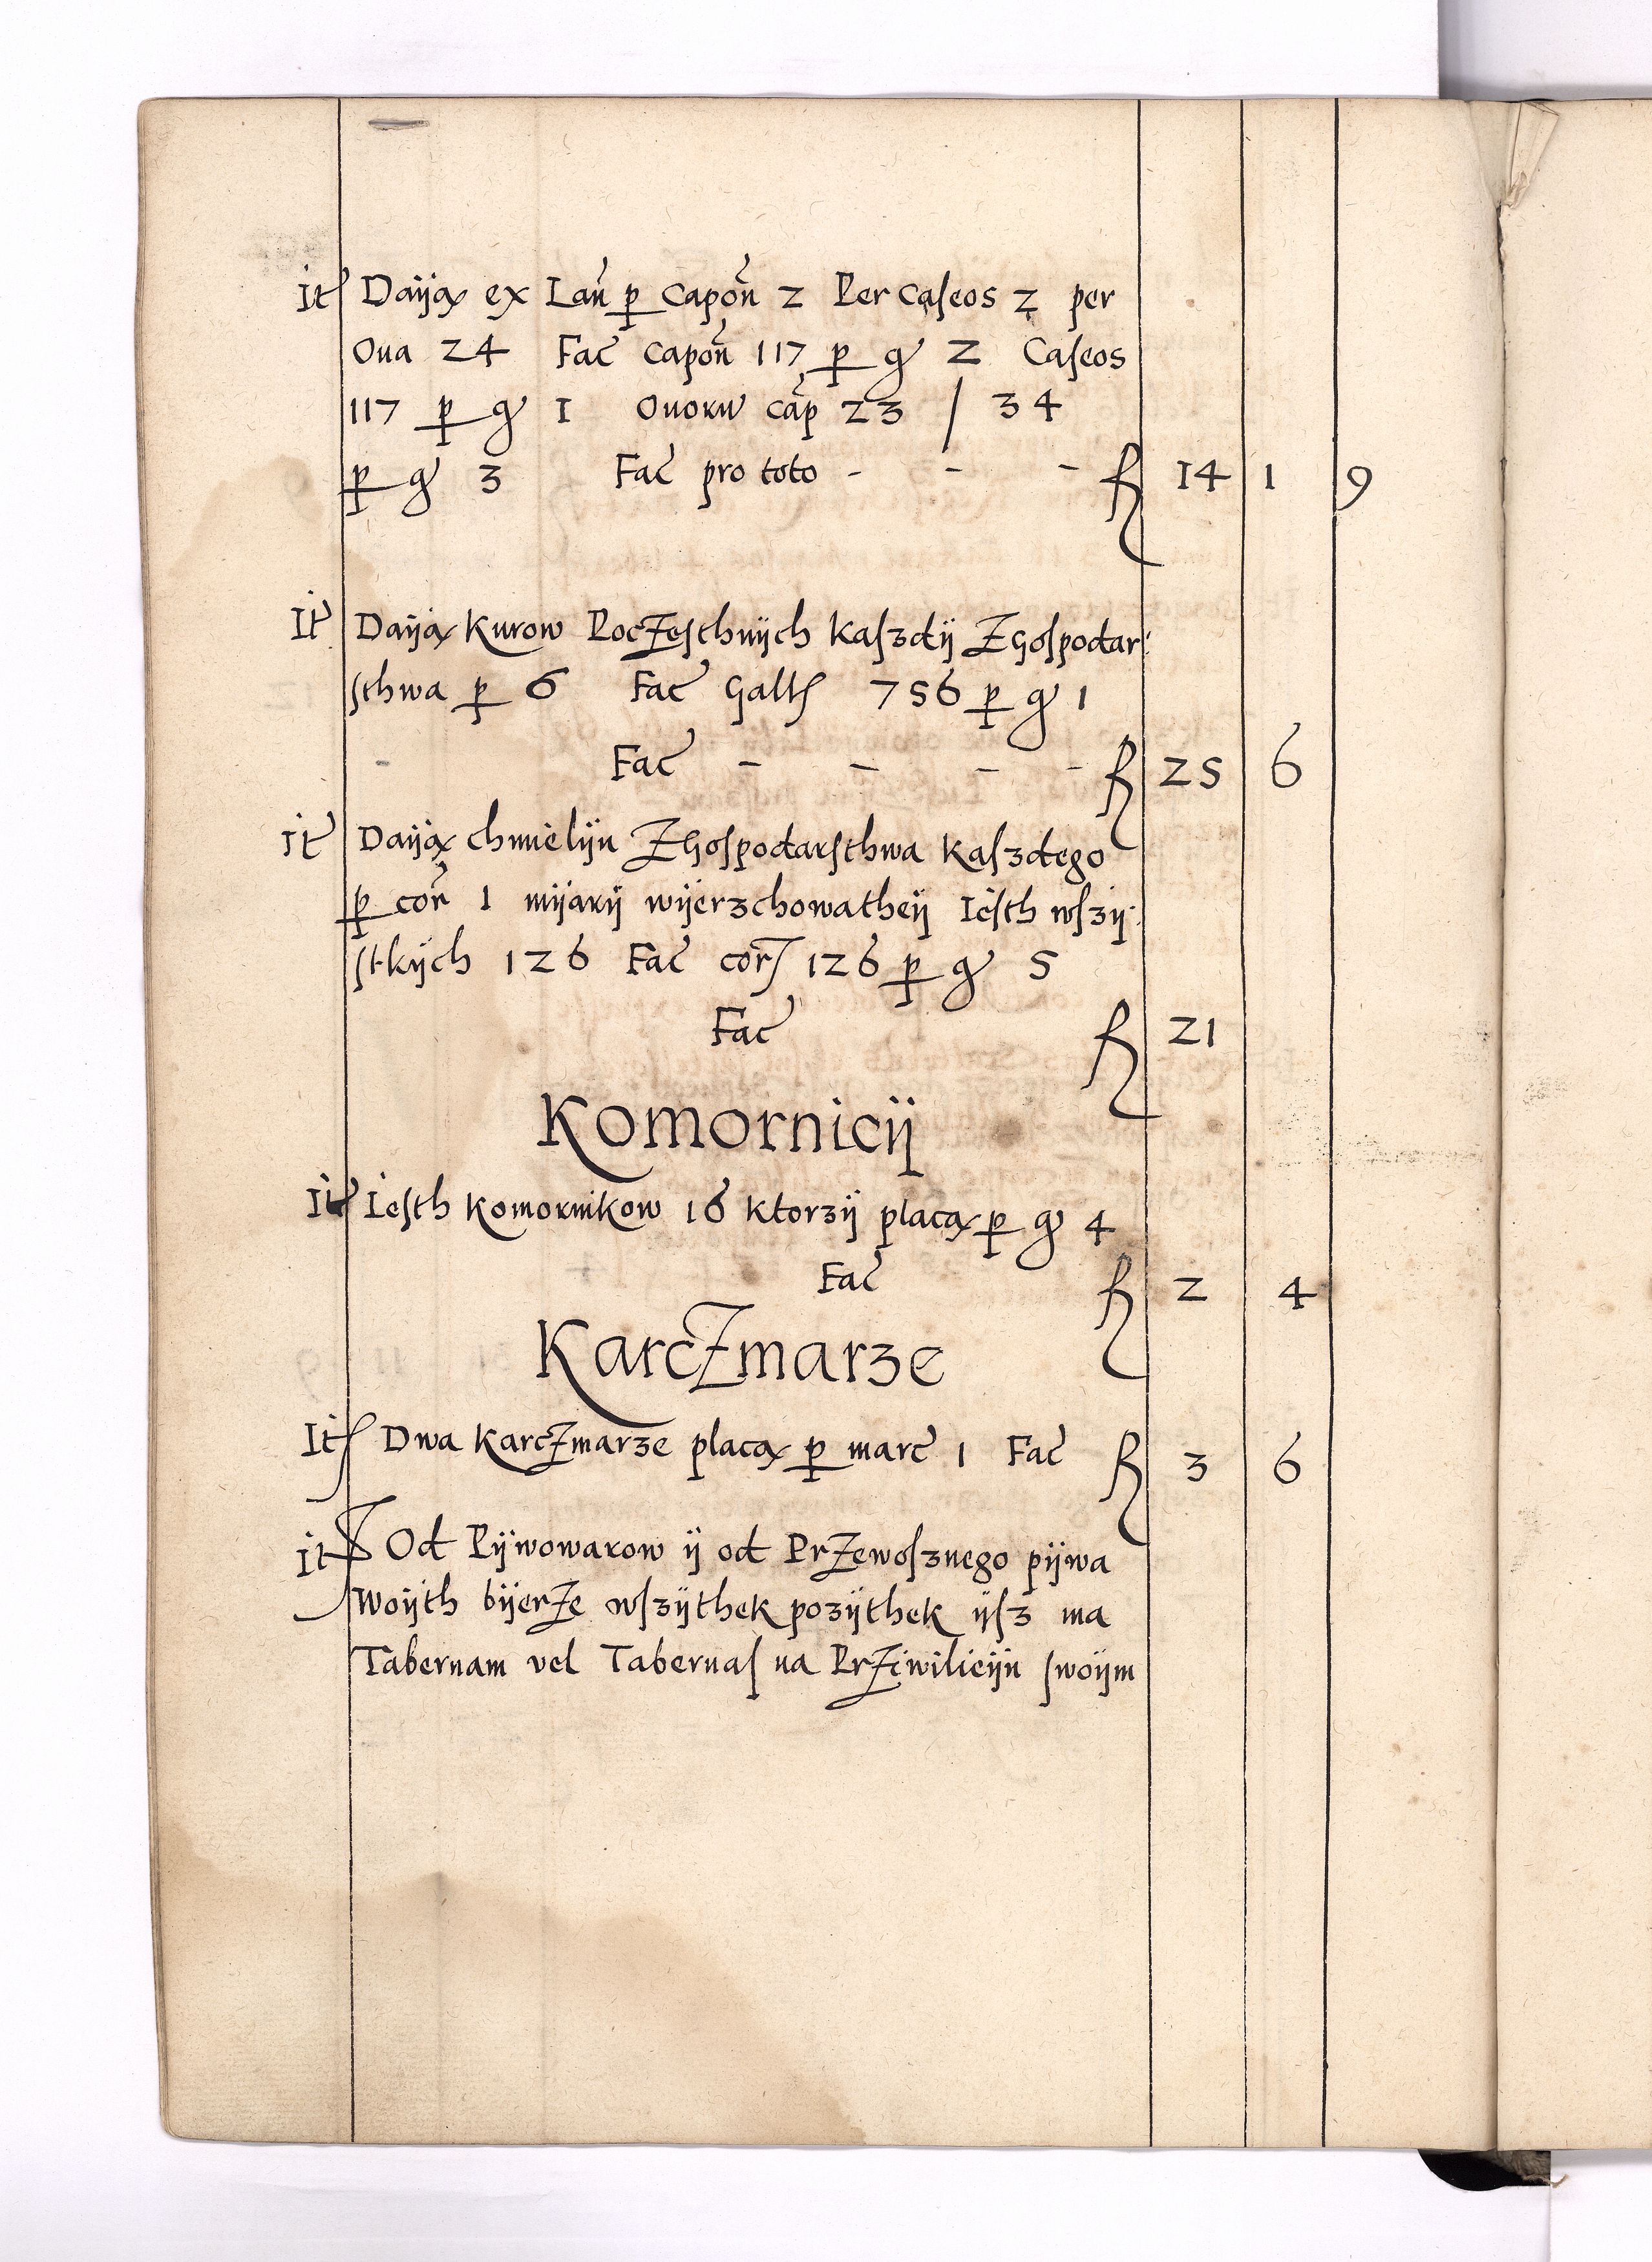 It Daÿą ex Lan̄ p̱ Capon̄ 2 Per Caſeos 2 per
Oua 24 Fac̄ Capon̄ 117 p̱ gr 2 Caſeos
117 p̱ gr 1 Ouoru cap̄ 23 / 34
p̱ gr 3 Fac̄ pro toto - - - fl 14 1 9
It Daÿą Kurow Poczeſthnÿch Kaſzdÿ ZGoſpodar:
ſthwa p̱ 6 Fac̄ Gall 756 p̱ gr 1
Fac̄ - - - - fl 25 6
It Daÿą chmielÿu ZGoſpodarſthwa Kaſzdego
p̱ cor̄ 1 mÿarÿ wÿerzchowatheÿ Ieſth wſzÿ:
ſtkÿch 126 Fac̄ cor̄ 126 p̱ gr 5
Fac̄ fl 21
Komornicÿ
It Ieſth Komornikow 16 Ktorzÿ placą p̱ gr 4
Fac̄ fl 2 4
Karczmarze
It Dwa Karczmarze placą p̱ marc̄ 1 Fac̄ fl 3 6
It Od Pÿwowarow ÿ od Przewoſznego pÿwa
Woÿth bÿerze wſzÿthek pozÿthek ÿſz ma
Tabernam vel Tabernaſ na Prziwilieÿu ſwoÿm